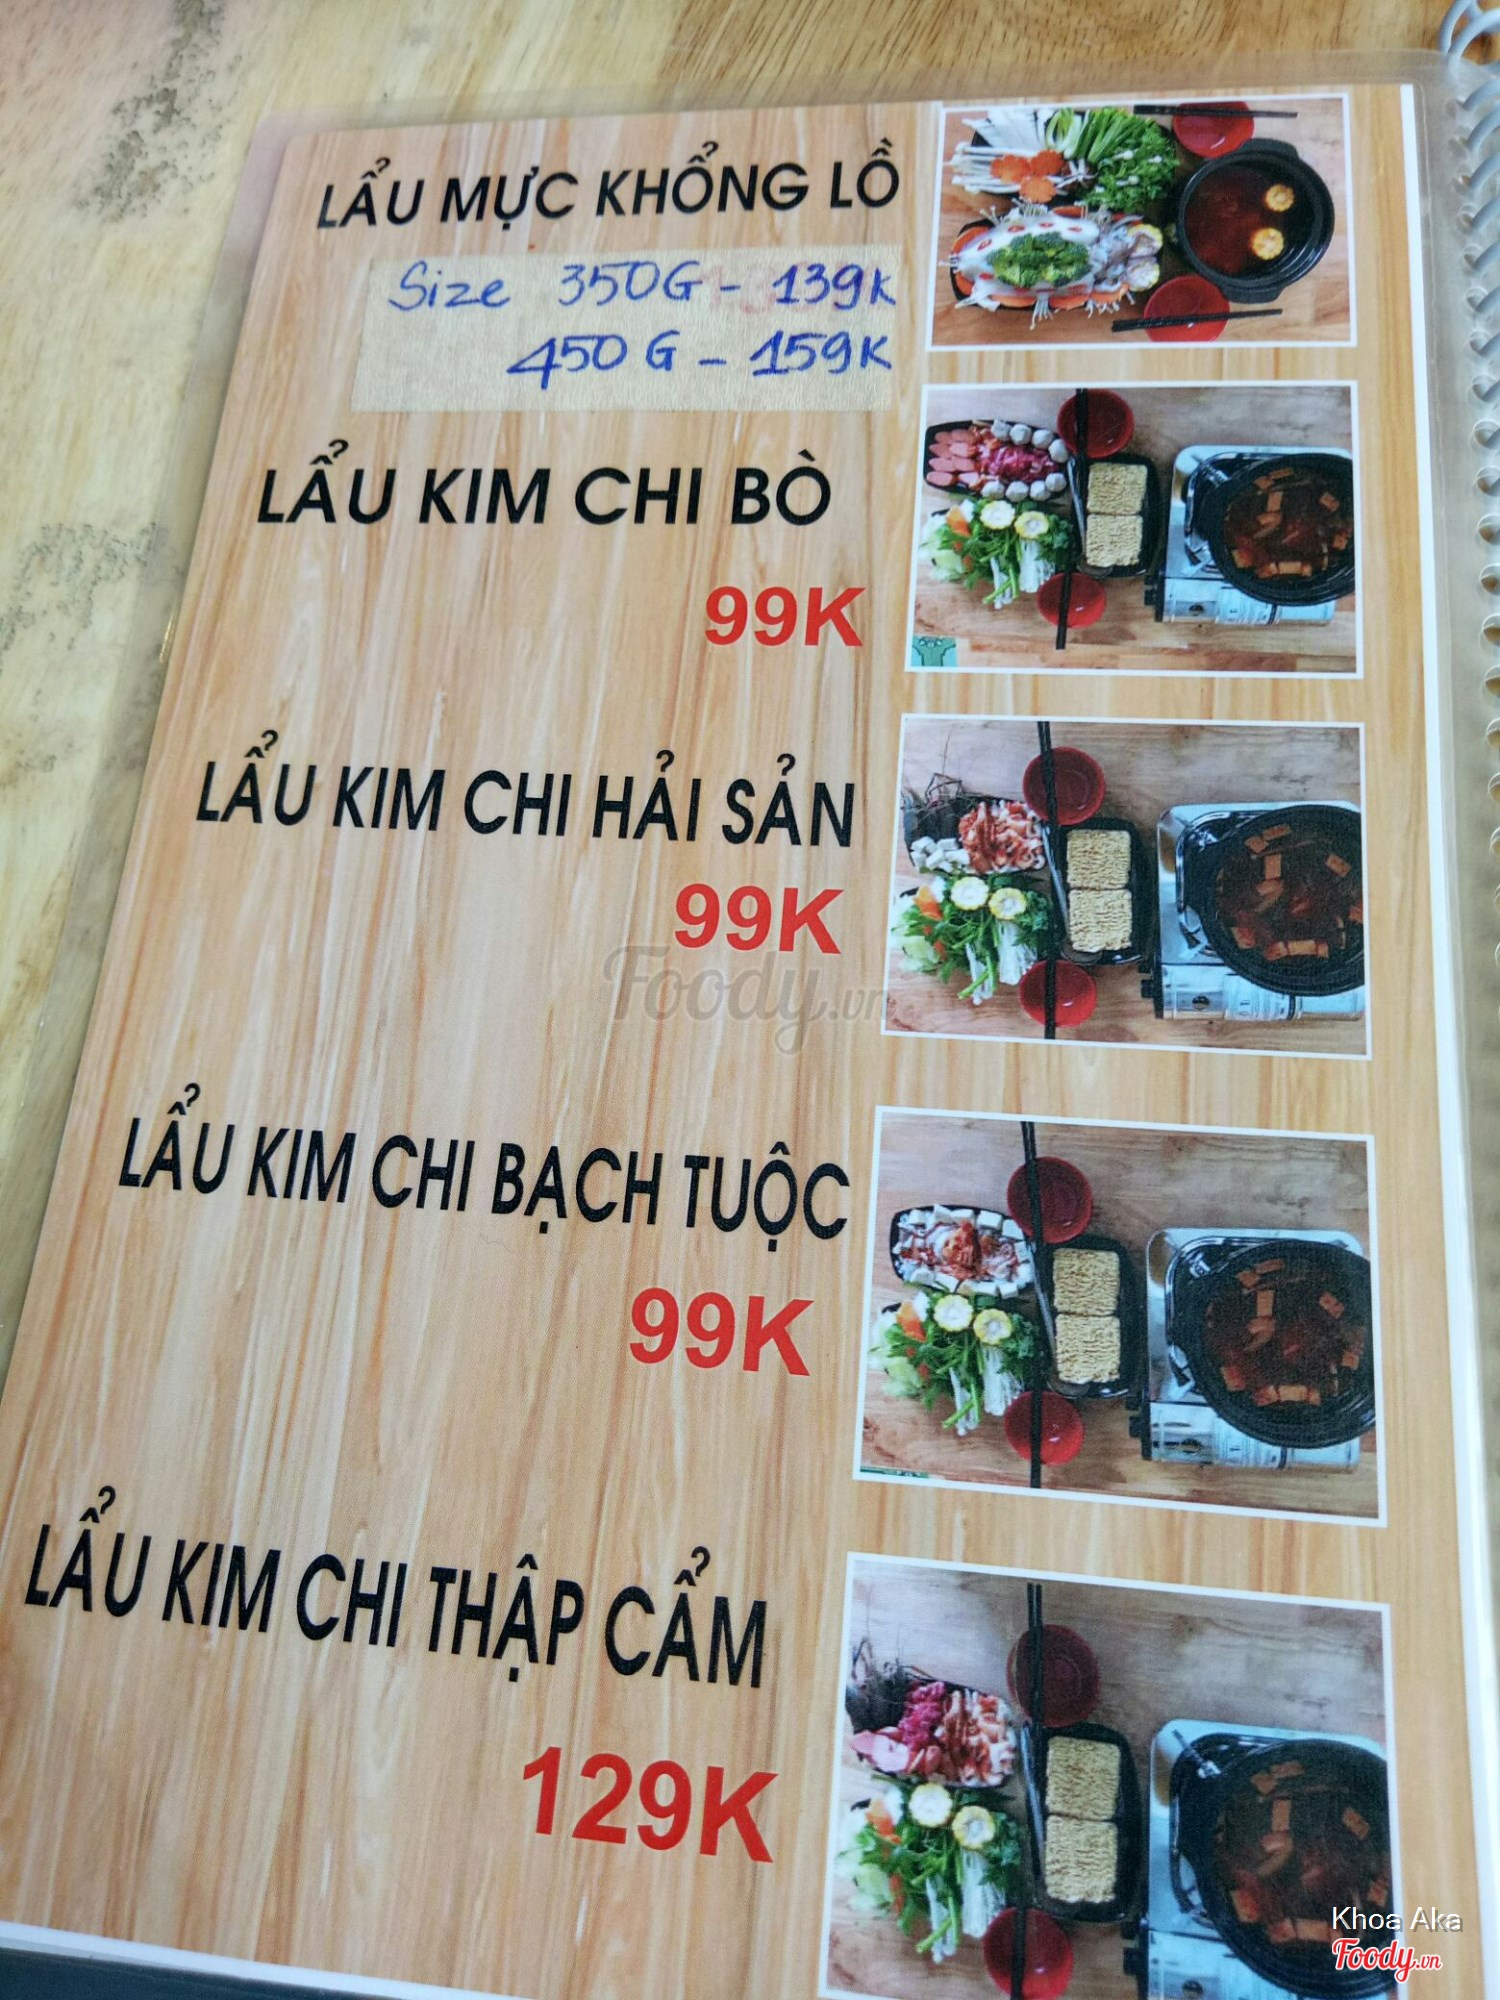 LẨU MỰC KHỔNG LỒ
Size 350G - 139K
450G - 159K
LẨU KIM CHI BÒ
99K
LẨU KIM CHI HẢI SẢN
99K
Foody.vn
LẨU KIM CHI BẠCH TUỘC
99K
LẨU KIM CHI THẬP CẨM
129K
Khoa Aka
Foody.vn